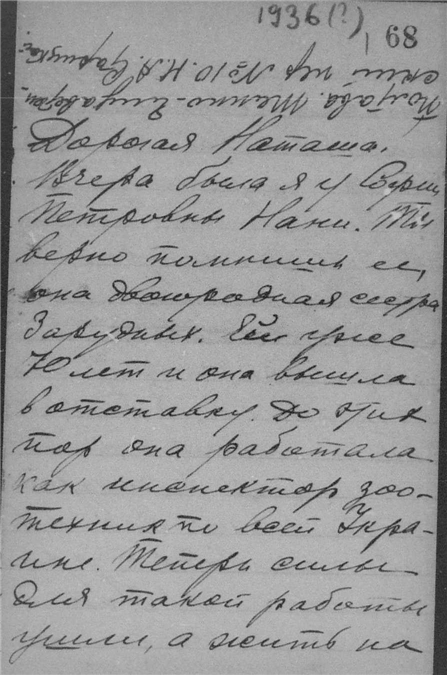 1936(?)
68
Полтава.
пер. №10. Н.А.
Дорогая Наташа.
Вчера была я у Софии
Петровны Нани. Ты
верно помнишь ее,
она двоюродная сестра
Зарудных. Ей уже
70 лет и она вышла
в отставку. До этих
пор она работала
как инспектор зоо-
техник по всей Укра-
ине. Теперь силы
для такой работы
ушли, а жить на